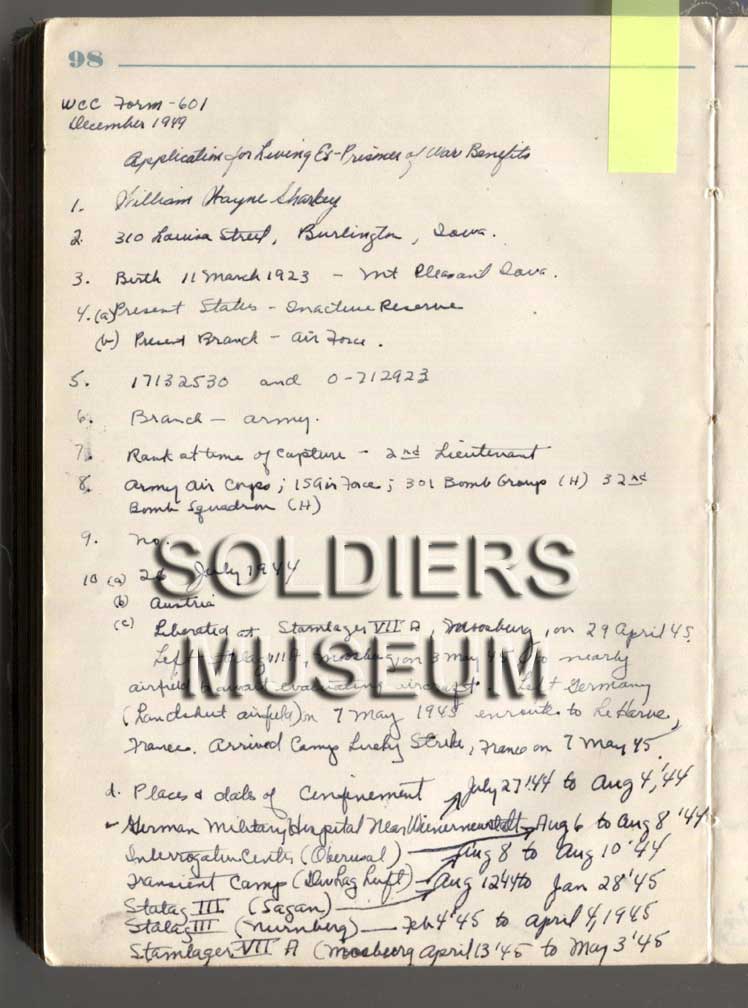 98
WCC Form-601
December 1949
Application for Living Ex-Prisoner of War Benefits
1. William Wayne Sharkey
2. 310 Louisa Street, Burlington, Iowa.
3. Birth 11 March 1923 - Mt Pleasant Iowa.
4. (a) Present Status - Inactive Reserve
(b) Present Branch - Air Force.
5. 17132530 and O-712923
6. Branch - army.
7. Rank at time of Capture - 2nd Lieutenant
8. Army Air Corps; 15 Air Force; 301 Bomb Group (H) 32nd
Bomb Squadron (H)
9. No.
10 (a) 26 July 1944
(b) Austria
(c) Liberated at Stamlager VII A, Moosburg, on 29 April 45.
Left Stalag VII A, Moosburg, on 3 May 45 to nearby
airfield to await evacuating aircraft. Left Germany
(Landshut airfield) on 7 May 1945 enroute to Le Harve,
France. Arrived Camp Lucky Strike, France on 7 May 45.
d. Places & dates of Confinement July 27 '44 to Aug 4, '44
German Military Hospital Near Wienerneustadt Aug 6 to Aug 8, '44
Interrogation Center (Oberusal) Aug 8 to Aug 10 '44
Transient Camp (Dulag Luft) Aug 12 44 to Jan 28 '45
Stalag III (Sagan)
Stalag III (Nurnberg) Feb 4 '45 to April 4, 1945
Stamlager VII A (Moosburg April 13 '45 to May 3 '45
SOLDIERS
MUSEUM